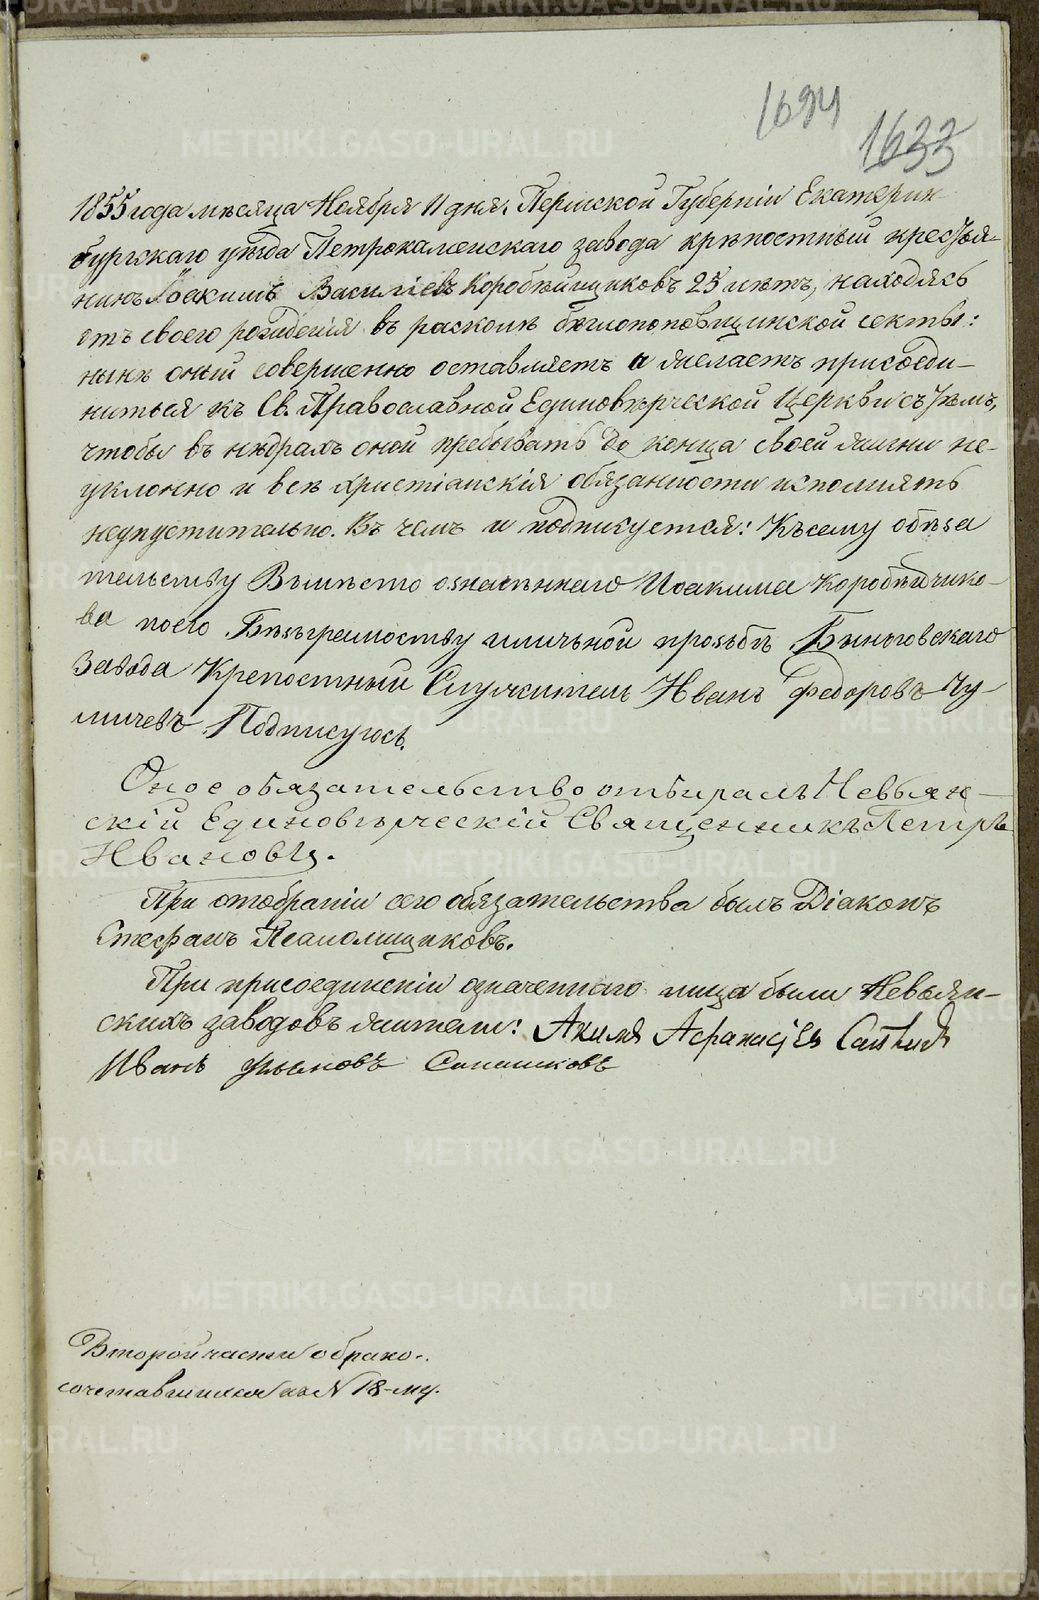 1694
1633
1855 года мѣсяца Ноября 11 дня. Пермской Губерніи Екатерин-
бургскаго уѣзда Петрокаменскаго завода крѣпостный кресть­я-
нинъ Іоакимъ Василіевъ Коробѣйщиковъ 25 лѣтъ, находясь
отъ своего рожденія въ расколѣ бѣглопоповщинской секты:
нынѣ оный совершенно оставляетъ и желаетъ присоеди-
ниться къ Св. Православной Единовѣрческой Церкви съ тѣмъ,
чтобы въ нѣдрахъ оной пребывать до конца своей жизни не-
уклонно и всѣ христіанскія обязанности исполнять
неупустительно. Въ чемъ и подписуется: Къ сему обяза
тельству Вмѣсто означеннаго Иоакима Коробѣйчико-
ва поего Безъграмотству иличьной прозьбѣ Быньговскаго
Завода Крепостный Служитель Иванъ Федоровъ
Подписуюсь.
Оное обязательство отбиралъ Невьян-
скій Единовѣрческій Священникъ Петръ
Ивановъ.
При отобраніи сего обязательства былъ Діаконъ
Стефанъ Псаломщиковъ.
При присоединеніи означеннаго лица были Невьян-
скихъ заводовъ жители: Акимъ Афанасіев
Иванъ Ульяновъ
Второй части о брако-
сочетавшихся по N 18-му.
METRIKI.GASO-URAL.RU